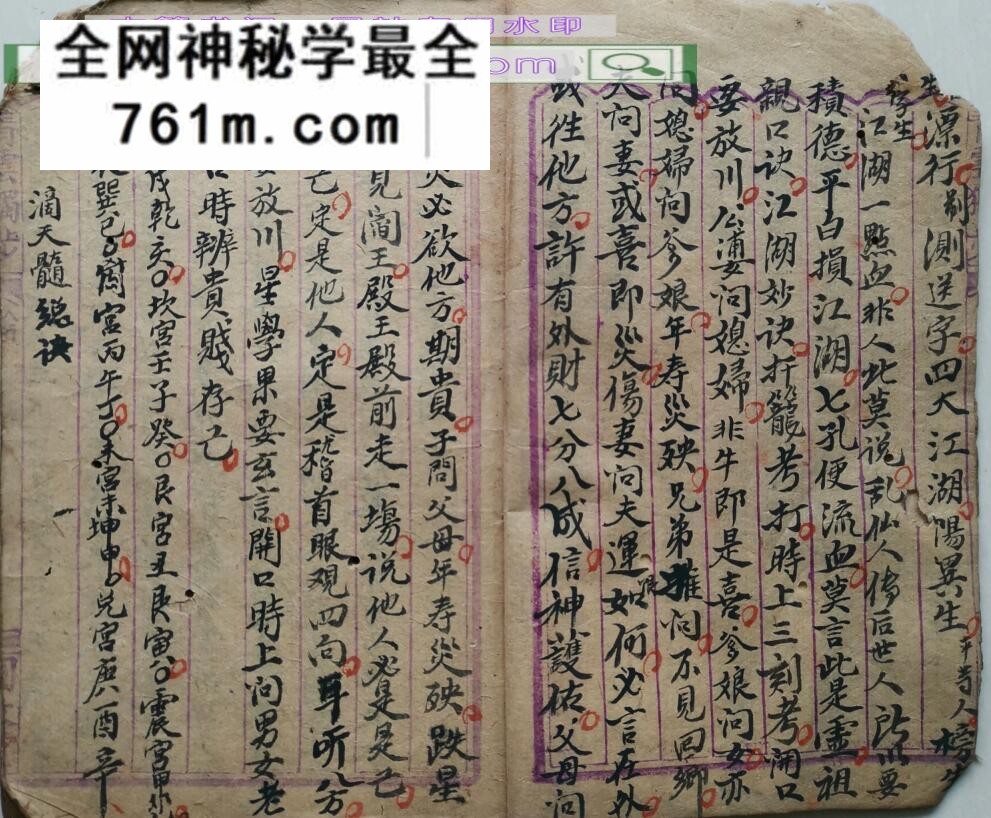 全网神秘学最全
761m.com
水印
com
漂行制測送字四大江湖陽異生
江湖一點血非人此莫说乱仙人傳后世人所以要
積德平白損江湖七孔便流血莫言此是虛祖
親口诀江湖妙诀扦籠考打時上三刻考開口
要放川公婆问媳婦非牛即是喜爹娘问女亦
问媳婦问爹娘年寿災殃兄弟推问不見回鄉
夫问妻或喜即災傷妻问夫運如何必言在外
或往他方許有外財七分八成信神護佑父母问
災必欲他方期貴子問父母年寿災殃跌星
見閻王殿王殿前走一場说他人必是是己
己定是他人定是稽首眼观四向耳听八方
放川星學果要玄言開口時上问男女老
時辨貴賤存己
戌乾亥坎宫壬子癸艮宫丑艮寅震宫甲卯
巽巳离宫丙午丁未宫未坤申兑宫庚酉辛
滴天髓總诀